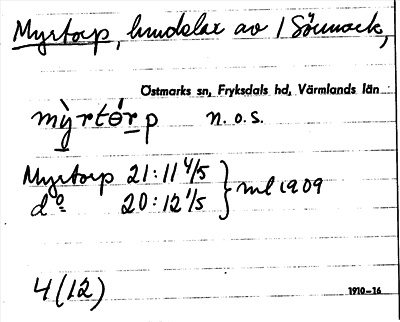 Myrtorp, hemdelar av 1 Sörmark,
Östmarks sn, Fryksdals hd, Värmlands län
mỳrtórp n. o. s.
Myrtorp 21:11 4/5
dº 20:12 1/5 } ml 1909
4 (12)
1910–16